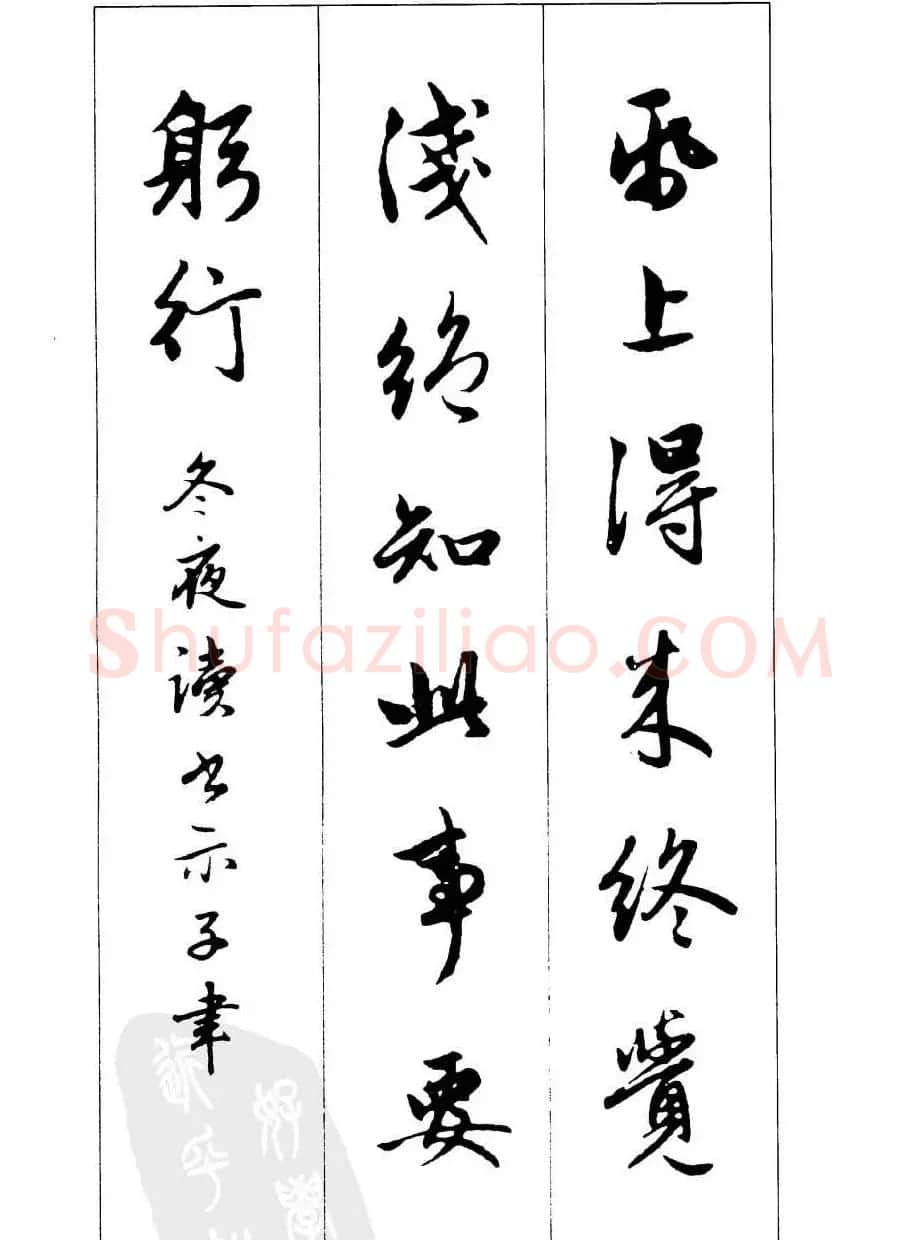 帋上得来終覺
淺絕知此事要
躬行 冬夜讀书示子聿
Shufaziliao.COM
好學
近乎